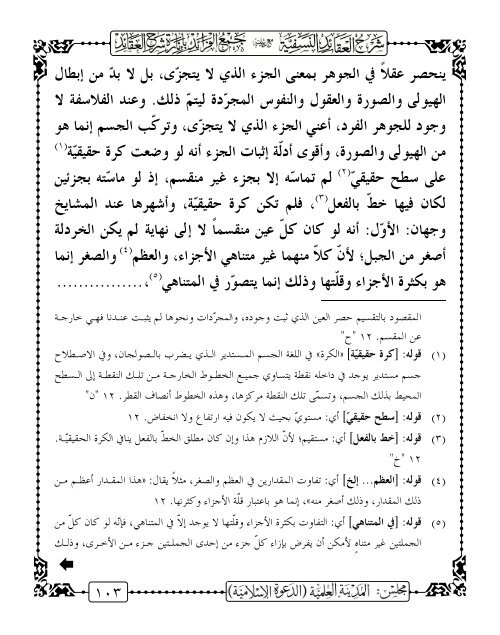 شرح العقائد النسفية مع جمع الفرائد بإنارة شرح العقائد
ينحصر عقلاً في الجوهر بمعنى الجزء الذي لا يتجزى، بل لا بدّ من إبطال
الهيولى والصورة والعقول والنفوس المجرّدة ليتمّ ذلك. وعند الفلاسفة لا
وجود للجوهر الفرد، أعني الجزء الذي لا يتجزى، وتركّب الجسم إنما هو
من الهيولى والصورة، وأقوى أدلّة إثبات الجزء أنه لو وضعت كرة حقيقيّة(١)
على سطح حقيقيّ(٢) لم تماسه إلا بجزء غير منقسم، إذ لو ماسّته بجزئين
لكان فيها خطّ بالفعل(٣)، فلم تكن كرة حقيقيّة، وأشهرها عند المشايخ
وجهان: الأوّل: أنه لو كان كلّ عين منقسماً لا إلى نهاية لم يكن الخردلة
أصغر من الجبل؛ لأنّ كلاًّ منهما غير متناهي الأجزاء، والعظم(٤) والصغر إنما
هو بكثرة الأجزاء وقلّتها وذلك إنما يتصوّر في المتناهي(٥)،................
المقصود بالتقسيم حصر العين الذي ثبت وجوده، والمجرّدات ونحوها لم يثبت عندنا فهي خارجة
عن المقسم. ١٢ "ح"
(١) قوله: [كرة حقيقيّة] «الكرة» في اللغة الجسم المستدير الذي يضرب بالصولجان، وفي الاصطلاح
جسم مستدير يوجد في داخله نقطة يتساوي جميع الخطوط الخارجة من تلك النقطة إلى السطح
المحيط بذلك الجسم، وتسمّى تلك النقطة مركزها، وهذه الخطوط أنصاف القطر. ١٢ "ن"
(٢) قوله: [سطح حقيقيّ] أي: مستويّ بحيث لا يكون فيه ارتفاع ولا انخفاض. ١٢
(٣) قوله: [خط بالفعل] أي: مستقيم؛ لأنّ اللازم هذا وإن كان مطلق الخطّ بالفعل ينافي الكرة الحقيقيّة.
١٢ "خ"
(٤) قوله: [العظم... إلخ] أي: تفاوت المقدارين في العظم والصغر، مثلاً يقال: «هذا المقدار أعظم من
ذلك المقدار، وذلك أصغر منه»، إنما هو باعتبار قلّة الأجزاء وكثرتها. ١٢
(٥) قوله: [في المتناهي] أي: التفاوت بكثرة الأجزاء وقلّتها لا يوجد إلاّ في المتناهي، فإنّه لو كان كلّ من
الجملتين غير متناهٍ لأمكن أن يفرض بإزاء كلّ جزء من إحدى الجملتين جزء من الأخرى، وذلك
مجلس: المدينة العلمية (الدعوة الإسلامية)
١٠٣